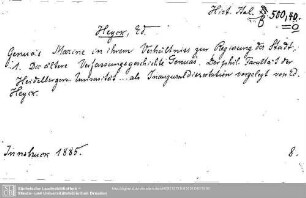 Hist. Ital. B 500,40
Heyck, Ed.
Genua's Marine in ihrem Verhältniss zur Regierung der Stadt,
1. Die ältere Verfassungsgeschichte Genuas. Der phil. Facultät der
Heidelberger Universität ... als Inauguraldissertation vorgelegt von Ed.
Heyck.
Innsbruck 1885.
8.
Sächsische Landesbibliothek -
Staats- und Universitätsbibliothek Dresden